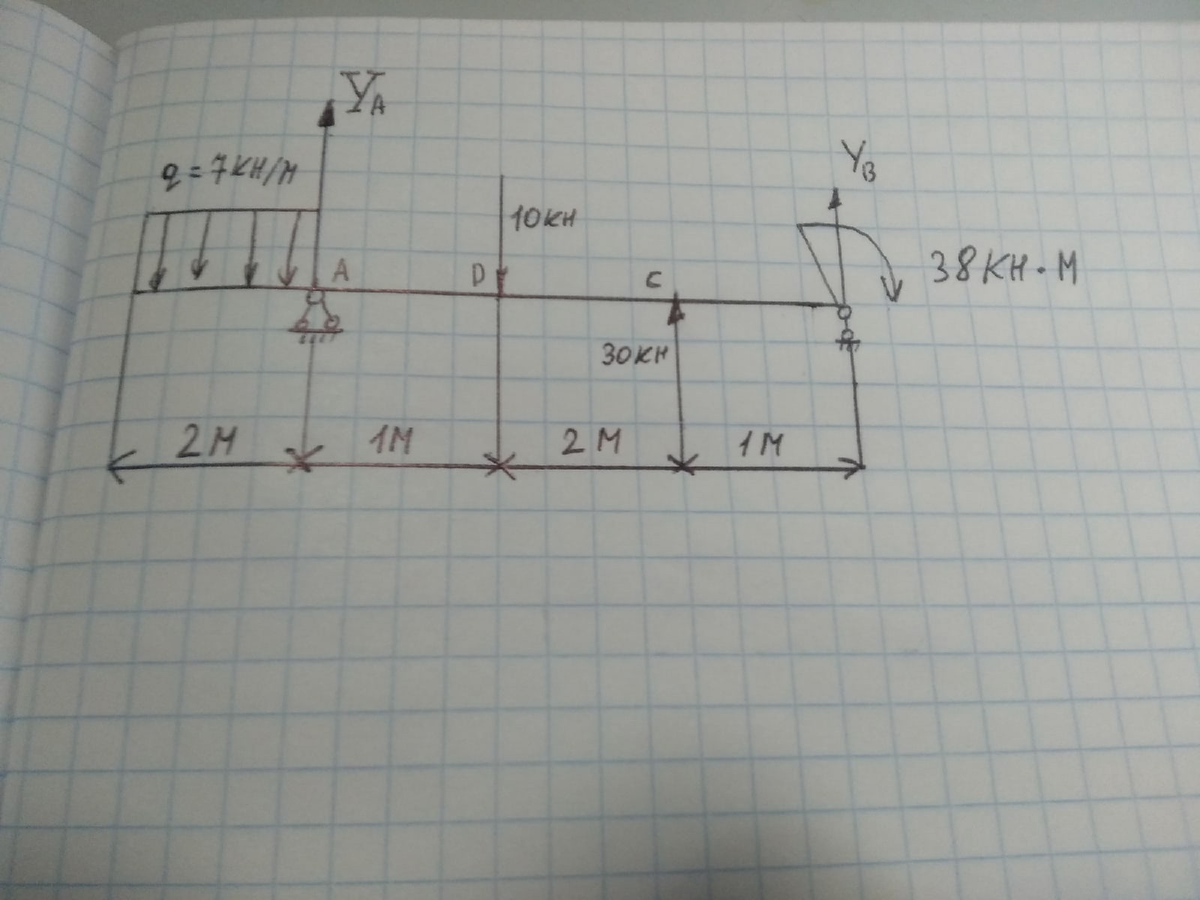 YA
q = 7 КН/М
YB
10 КН
38 КН · М
A
D
C
30 КН
2 М
1 М
2 М
1 М